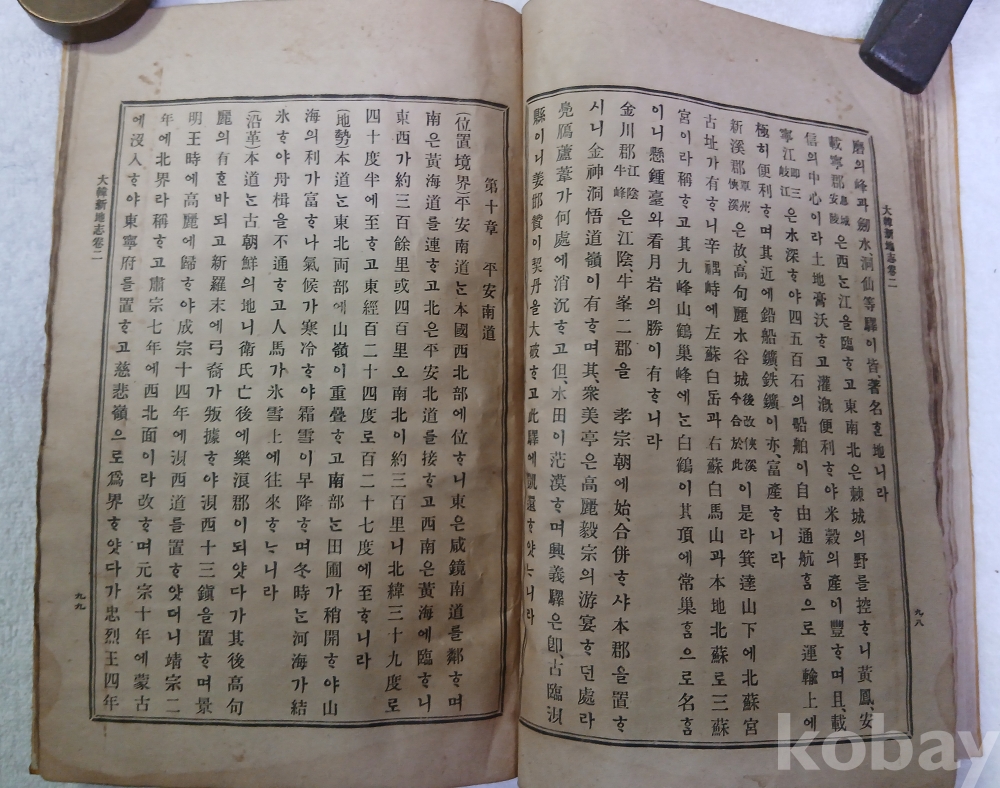 大韓新地志卷二
磨의峰과劒水、洞仙等驛이皆、著名ᄒᆞᆫ地니라
載寧郡 息城 安陵 은西ᄂᆞᆫ江을臨ᄒᆞ고東南北은棘城의野를控ᄒᆞ니黃鳳、安
信의中心이라土地膏沃ᄒᆞ고灌漑便利ᄒᆞ야米穀의產이豐ᄒᆞ며且、載
寧江 卽三 岐江 은水深ᄒᆞ야四五百石의船舶이自由通航ᄒᆞᆷ으로運輸上에
極히便利ᄒᆞ며其近에鉛船鑛、鉄鑛이亦、富產ᄒᆞ니라
新溪郡 覃州 俠溪 은故、高句麗水谷城 後改俠溪 今合於此 이是라箕達山下에北蘇宮
古址가有ᄒᆞ니辛禑時에左蘇白岳과右蘇白馬山과本地北蘇로三蘇
宮이라稱ᄒᆞ고其九峰山鶴巢峰에ᄂᆞᆫ白鶴이其頂에常巢ᄒᆞᆷ으로名ᄒᆞᆷ
이니懸鍾臺와看月岩의勝이有ᄒᆞ니라
金川郡 江陰 牛峰 은江陰、牛峯二郡을 孝宗朝에始合併ᄒᆞ샤本郡을置ᄒᆞ
시니金神洞悟道嶺이有ᄒᆞ며其、衆美亭은高麗毅宗의游宴ᄒᆞ던處라
鳧鴈蘆葦가何處에消沉ᄒᆞ고但、水田이茫漠ᄒᆞ며興義驛은卽、古臨浿
縣이니姜邯贊이契丹을大破ᄒᆞ고此驛에凱還ᄒᆞ얏ᄂᆞ니라
九八
第十章 平安南道
(位置境界)平安南道ᄂᆞᆫ本國西北部에位ᄒᆞ니東은咸鏡南道를鄰ᄒᆞ며
南은黃海道를連ᄒᆞ고北은平安北道를接ᄒᆞ고西南은黃海에臨ᄒᆞ니
東西가約三百餘里或四百里오南北이約三百里니北緯三十九度로
四十度半에至ᄒᆞ고東經百二十四度로百二十七度에至ᄒᆞ니라
(地勢)本道ᄂᆞᆫ東北両部에山嶺이重疊ᄒᆞ고南部ᄂᆞᆫ田圃가稍開ᄒᆞ야山
海의利가富ᄒᆞ나氣候가寒冷ᄒᆞ야霜雪이早降ᄒᆞ며冬時ᄂᆞᆫ河海가結
氷ᄒᆞ야舟楫을不通ᄒᆞ고人馬가氷雪上에往來ᄒᆞᄂᆞ니라
(沿革)本道ᄂᆞᆫ古朝鮮의地니衛氏亡後에樂浪郡이되얏다가其後高句
麗의有ᄒᆞᆫ바되고新羅末에弓裔가叛據ᄒᆞ야浿西十三鎭을置ᄒᆞ며景
明王時에高麗에歸ᄒᆞ야成宗十四年에浿西道를置ᄒᆞ얏더니靖宗二
年에北界라稱ᄒᆞ고肅宗七年에西北面이라改ᄒᆞ며元宗十年에蒙古
에沒入ᄒᆞ야東寧府를置ᄒᆞ고慈悲嶺으로爲界ᄒᆞ얏다가忠烈王四年
大韓新地志卷二
九九
kobay